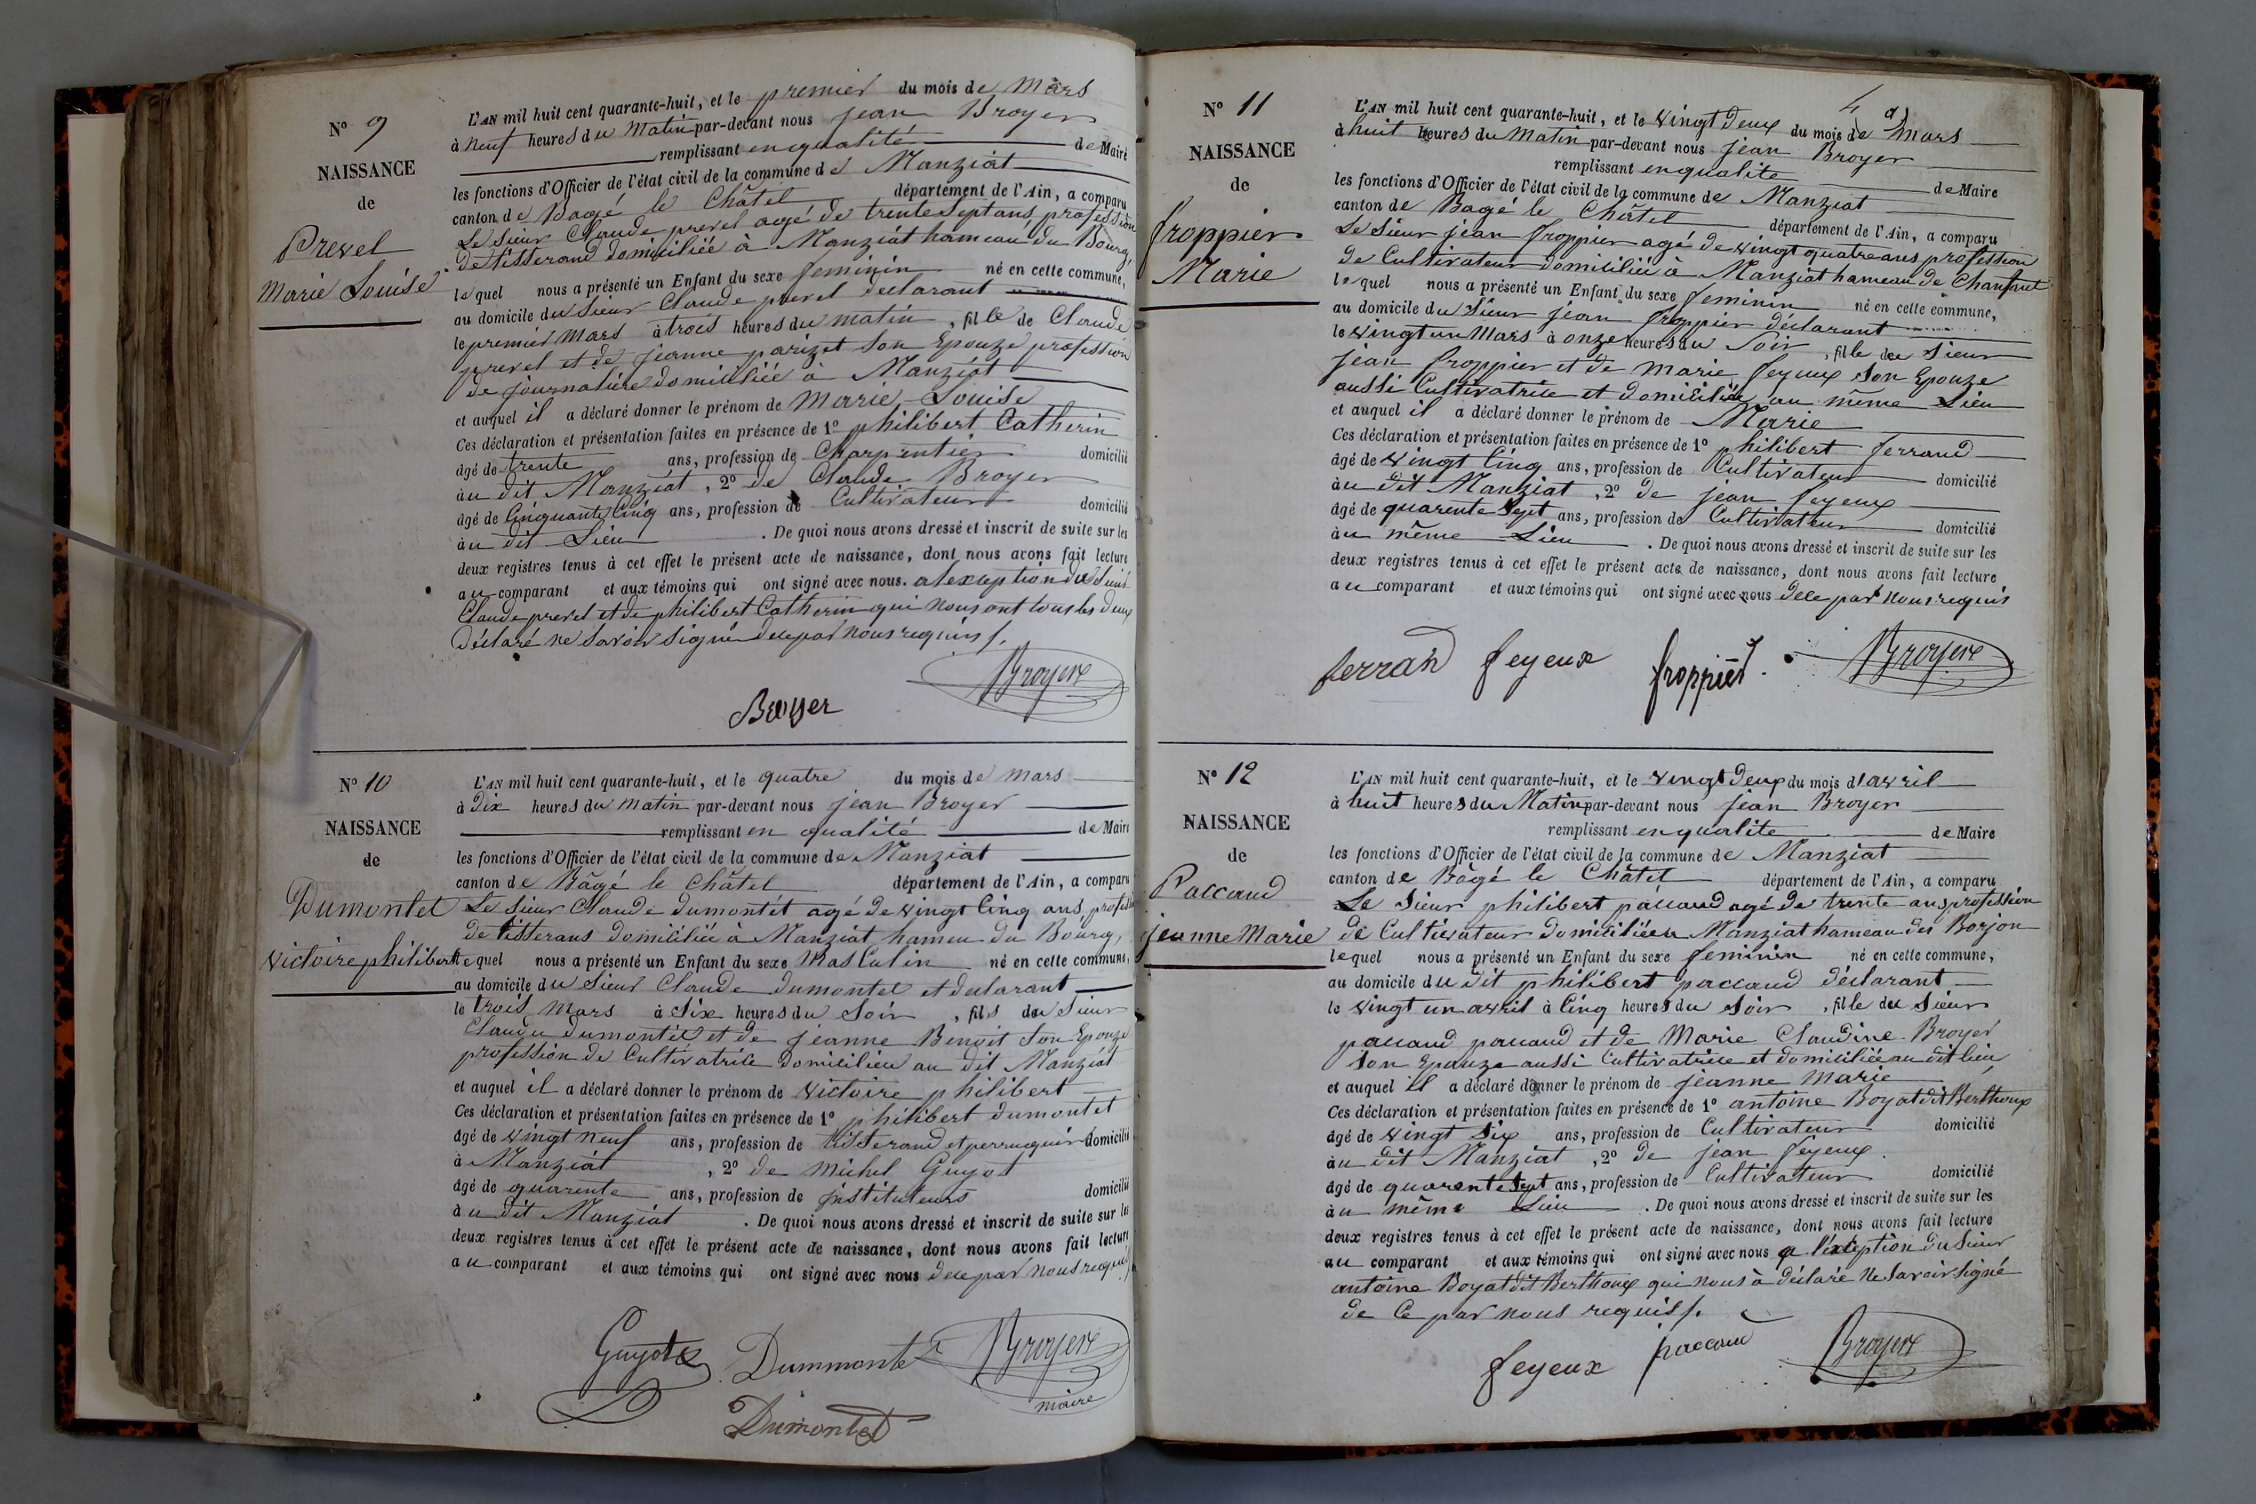 N° 9
NAISSANCE
de
Prevel
Marie Louise
L'AN mil huit cent quarante-huit, et le premier du mois de Mars
à neuf heures du Matin par-devant nous jean Broyer
remplissant en qualité de Maire
les fonctions d'Officier de l'état civil de la commune de Manziat
canton de Bagé le Châtel département de l'Ain, a comparu
Le Sieur Claude prevel agé de trente Sept ans, profession
de tisserand domiciliée à Manziat hameau du Bourg,
lequel nous a présenté un Enfant du sexe feminin né en cette commune,
au domicile du Sieur Claude prevel declarant
le premier Mars à trois heures du matin, fille de Claude
prevel et de jeanne parizet son Epouze profession
de journalière domiciliée à Manziat
et auquel il a déclaré donner le prénom de Marie, Louise
Ces déclaration et présentation faites en présence de 1° philibert Catherin
âgé de trente ans, profession de Charpentier domicilié
au dit Manziat, 2° de Claude Broyer
âgé de Cinquante Cinq ans, profession de Cultivateur domicilié
au dit Lieu. De quoi nous avons dressé et inscrit de suite sur les
deux registres tenus à cet effet le présent acte de naissance, dont nous avons fait lecture
au comparant et aux témoins qui ont signé avec nous. a lexception du Sieur
Claude prevel et de philibert Catherin qui nous ont tous les deux
déclaré ne Savoir Signé dece par nous requis /.
Broyer
Broyer
N° 10
NAISSANCE
de
Dumontet
Victoire philibert
L'AN mil huit cent quarante-huit, et le quatre du mois de mars
à dix heures du matin par-devant nous jean Broyer
remplissant en qualité de Maire
les fonctions d'Officier de l'état civil de la commune de Manziat
canton de Bâgé le Châtel département de l'Ain, a comparu
Le Sieur Claude dumontet agé de vingt Cinq ans, profession
de tisserans domiciliée à Manziat hameu du Bourg,
lequel nous a présenté un Enfant du sexe Masculin né en cette commune,
au domicile du Sieur Claude dumontet et declarant
le trois Mars à Six heures du Soir, fils du Sieur
Claude dumontet et de jeanne Benoit Son Epouze
profession de Cultivatrice domiciliée au dit Manziat
et auquel il a déclaré donner le prénom de Victoire philibert
Ces déclaration et présentation faites en présence de 1° philibert dumontet
âgé de vingt neuf ans, profession de tisserand et perruquier domicilié
à Manziat, 2° de Michel Guyot
âgé de quarente ans, profession de jnstituteurs domicilié
au dit Manziat. De quoi nous avons dressé et inscrit de suite sur les
deux registres tenus à cet effet le présent acte de naissance, dont nous avons fait lecture
au comparant et aux témoins qui ont signé avec nous dece par nous requis /.
Guyot Dummontet Broyer
maire
Dumontet
4
N° 11
NAISSANCE
de
froppier
Marie
L'AN mil huit cent quarante-huit, et le vingt deux du mois de Mars
à huit heures du Matin par-devant nous jean Broyer
remplissant en qualite de Maire
les fonctions d'Officier de l'état civil de la commune de Manziat
canton de Bagé le Châtel département de l'Ain, a comparu
Le Sieur jean froppier agé de vingt quatre ans profession
de Cultivateur domiciliée à Manziat hameau de Chanfant
lequel nous a présenté un Enfant du sexe feminin né en cette commune,
au domicile du Sieur jean froppier déclarant
le vingt un Mars à onze heures du Soir, fille du Sieur
jean froppier et de Marie feyeux Son Epouze
aussi Cultivatrice et domiciliée au même Lieu
et auquel il a déclaré donner le prénom de Marie
Ces déclaration et présentation faites en présence de 1° philibert ferrand
âgé de vingt Cinq ans, profession de Cultivateur domicilié
au dit Manziat, 2° de jean feyeux
âgé de quarente Sept ans, profession de Cultivateur domicilié
au même Lieu. De quoi nous avons dressé et inscrit de suite sur les
deux registres tenus à cet effet le présent acte de naissance, dont nous avons fait lecture
au comparant et aux témoins qui ont signé avec nous dece par nous requis
ferran feyeux froppier Broyer
N° 12
NAISSANCE
de
Paccaud
jeanne Marie
L'AN mil huit cent quarante-huit, et le vingt deux du mois d'avril
à huit heures du Matin par-devant nous jean Broyer
remplissant en qualite de Maire
les fonctions d'Officier de l'état civil de la commune de Manziat
canton de Bâgé le Châtel département de l'Ain, a comparu
Le Sieur philibert paccaud agé de trente ans profession
de Cultivateur domiciliée à Manziat hameau des Borjon
lequel nous a présenté un Enfant du sexe feminin né en cette commune,
au domicile du dit philibert paccaud déclarant
le vingt un avril à Cinq heures du Soir, fille du Sieur
paccaud paccaud et de Marie Claudine Broyer
Son Epouze aussi Cultivatrice et domiciliée au dit lieu,
et auquel il a déclaré donner le prénom de jeanne Marie
Ces déclaration et présentation faites en présence de 1° antoine Boyat dit Berthoux
âgé de vingt Six ans, profession de Cultivateur domicilié
au dit Manziat, 2° de jean feyeux.
âgé de quarente Sept ans, profession de Cultivateur domicilié
au même Lieu. De quoi nous avons dressé et inscrit de suite sur les
deux registres tenus à cet effet le présent acte de naissance, dont nous avons fait lecture
au comparant et aux témoins qui ont signé avec nous a l'exception du Sieur
antoine Boyat dit Berthoux qui nous à déclaré Ne Savoir Signé
de Ce par nous requis /.
feyeux paccaud Broyer